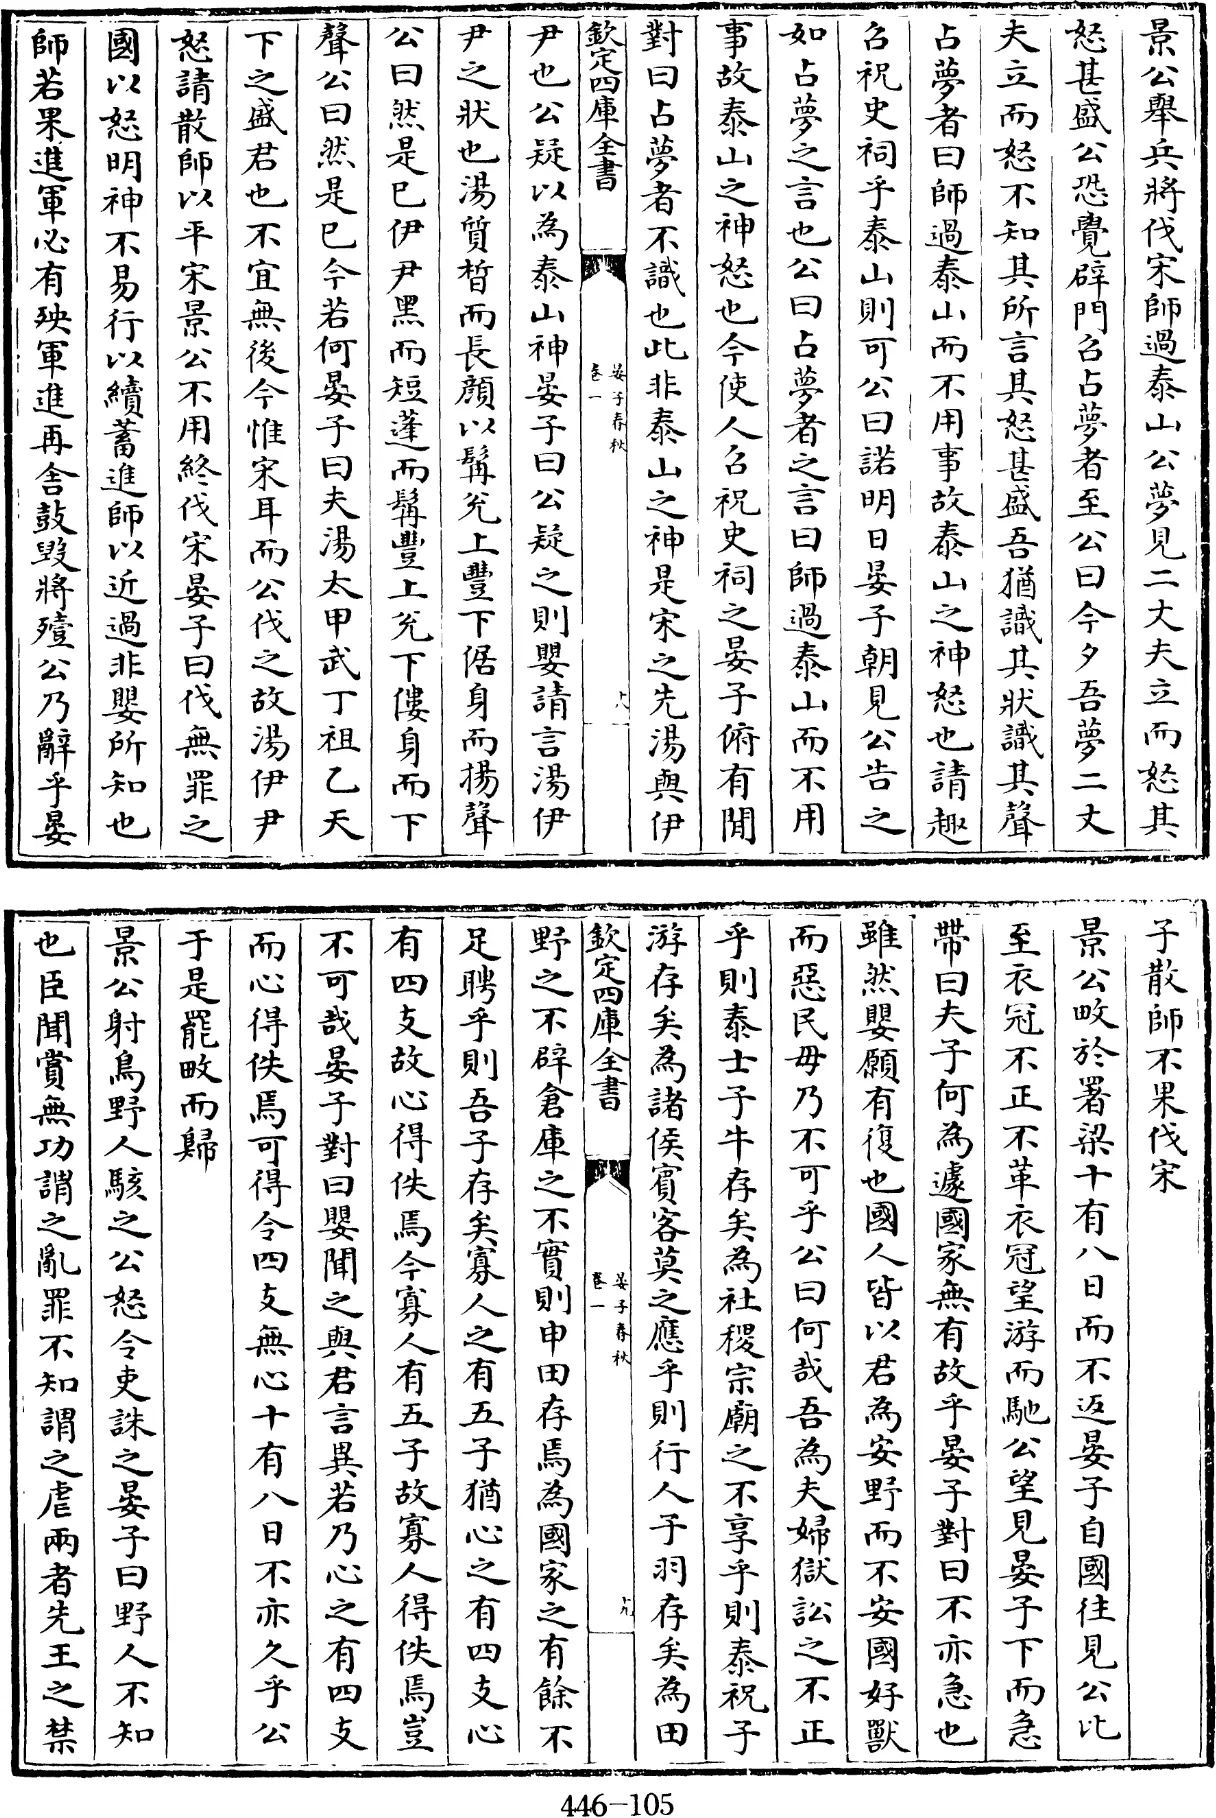 景公舉兵將伐宋師過泰山公夢見二丈夫立而怒其
怒甚盛公恐覺辟門召占夢者至公曰今夕吾夢二丈
夫立而怒不知其所言其怒甚盛吾猶識其狀識其聲
占夢者曰師過泰山而不用事故泰山之神怒也請趣
召祝史祠乎泰山則可公曰諾明日晏子朝見公告之
如占夢之言也公曰占夢者之言曰師過泰山而不用
事故泰山之神怒也今使人召祝史祠之晏子俯有間
對曰占夢者不識也此非泰山之神是宋之先湯與伊
欽定四庫全書
晏子春秋
卷一
十八
尹也公疑以為泰山神晏子曰公疑之則嬰請言湯伊
尹之狀也湯質晳而長顔以髯兊上豐下倨身而揚聲
公曰然是已伊尹黑而短蓬而髯豐上兊下僂身而下
聲公曰然是已今若何晏子曰夫湯太甲武丁祖乙天
下之盛君也不宜無後今惟宋耳而公伐之故湯伊尹
怒請散師以平宋景公不用終伐宋晏子曰伐無罪之
國以怒明神不易行以續蓄進師以近過非嬰所知也
師若果進軍必有殃軍進再舎鼓毀將殪公乃辭乎晏
子散師不果伐宋
景公畋於署梁十有八日而不返晏子自國往見公比
至衣冠不正不革衣冠望游而馳公望見晏子下而急
帶曰夫子何為遽國家無有故乎晏子對曰不亦急也
雖然嬰願有復也國人皆以君為安野而不安國好獸
而惡民毋乃不可乎公曰何哉吾為夫婦獄訟之不正
乎則泰士子牛存矣為社稷宗廟之不享乎則泰祝子
游存矣為諸侯賓客莫之應乎則行人子羽存矣為田
欽定四庫全書
晏子春秋
卷一
十九
野之不辟倉庫之不實則申田存焉為國家之有餘不
足聘乎則吾子存矣寡人之有五子猶心之有四支心
有四支故心得佚焉今寡人有五子故寡人得佚焉豈
不可哉晏子對曰嬰聞之與君言異若乃心之有四支
而心得佚焉可得令四支無心十有八日不亦久乎公
于是罷畋而歸
景公射鳥野人駭之公怒令吏誅之晏子曰野人不知
也臣聞賞無功謂之亂罪不知謂之虐兩者先王之禁
446-105